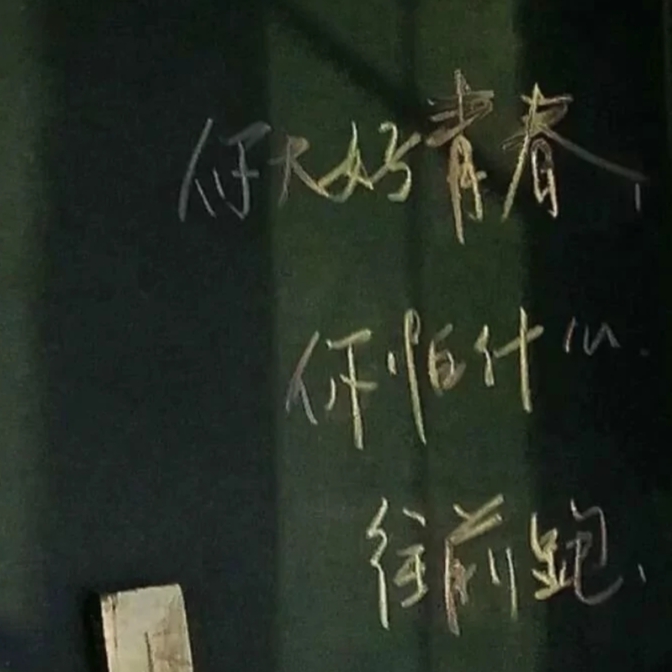 你大好青春,
你怕什么.
往前跑,